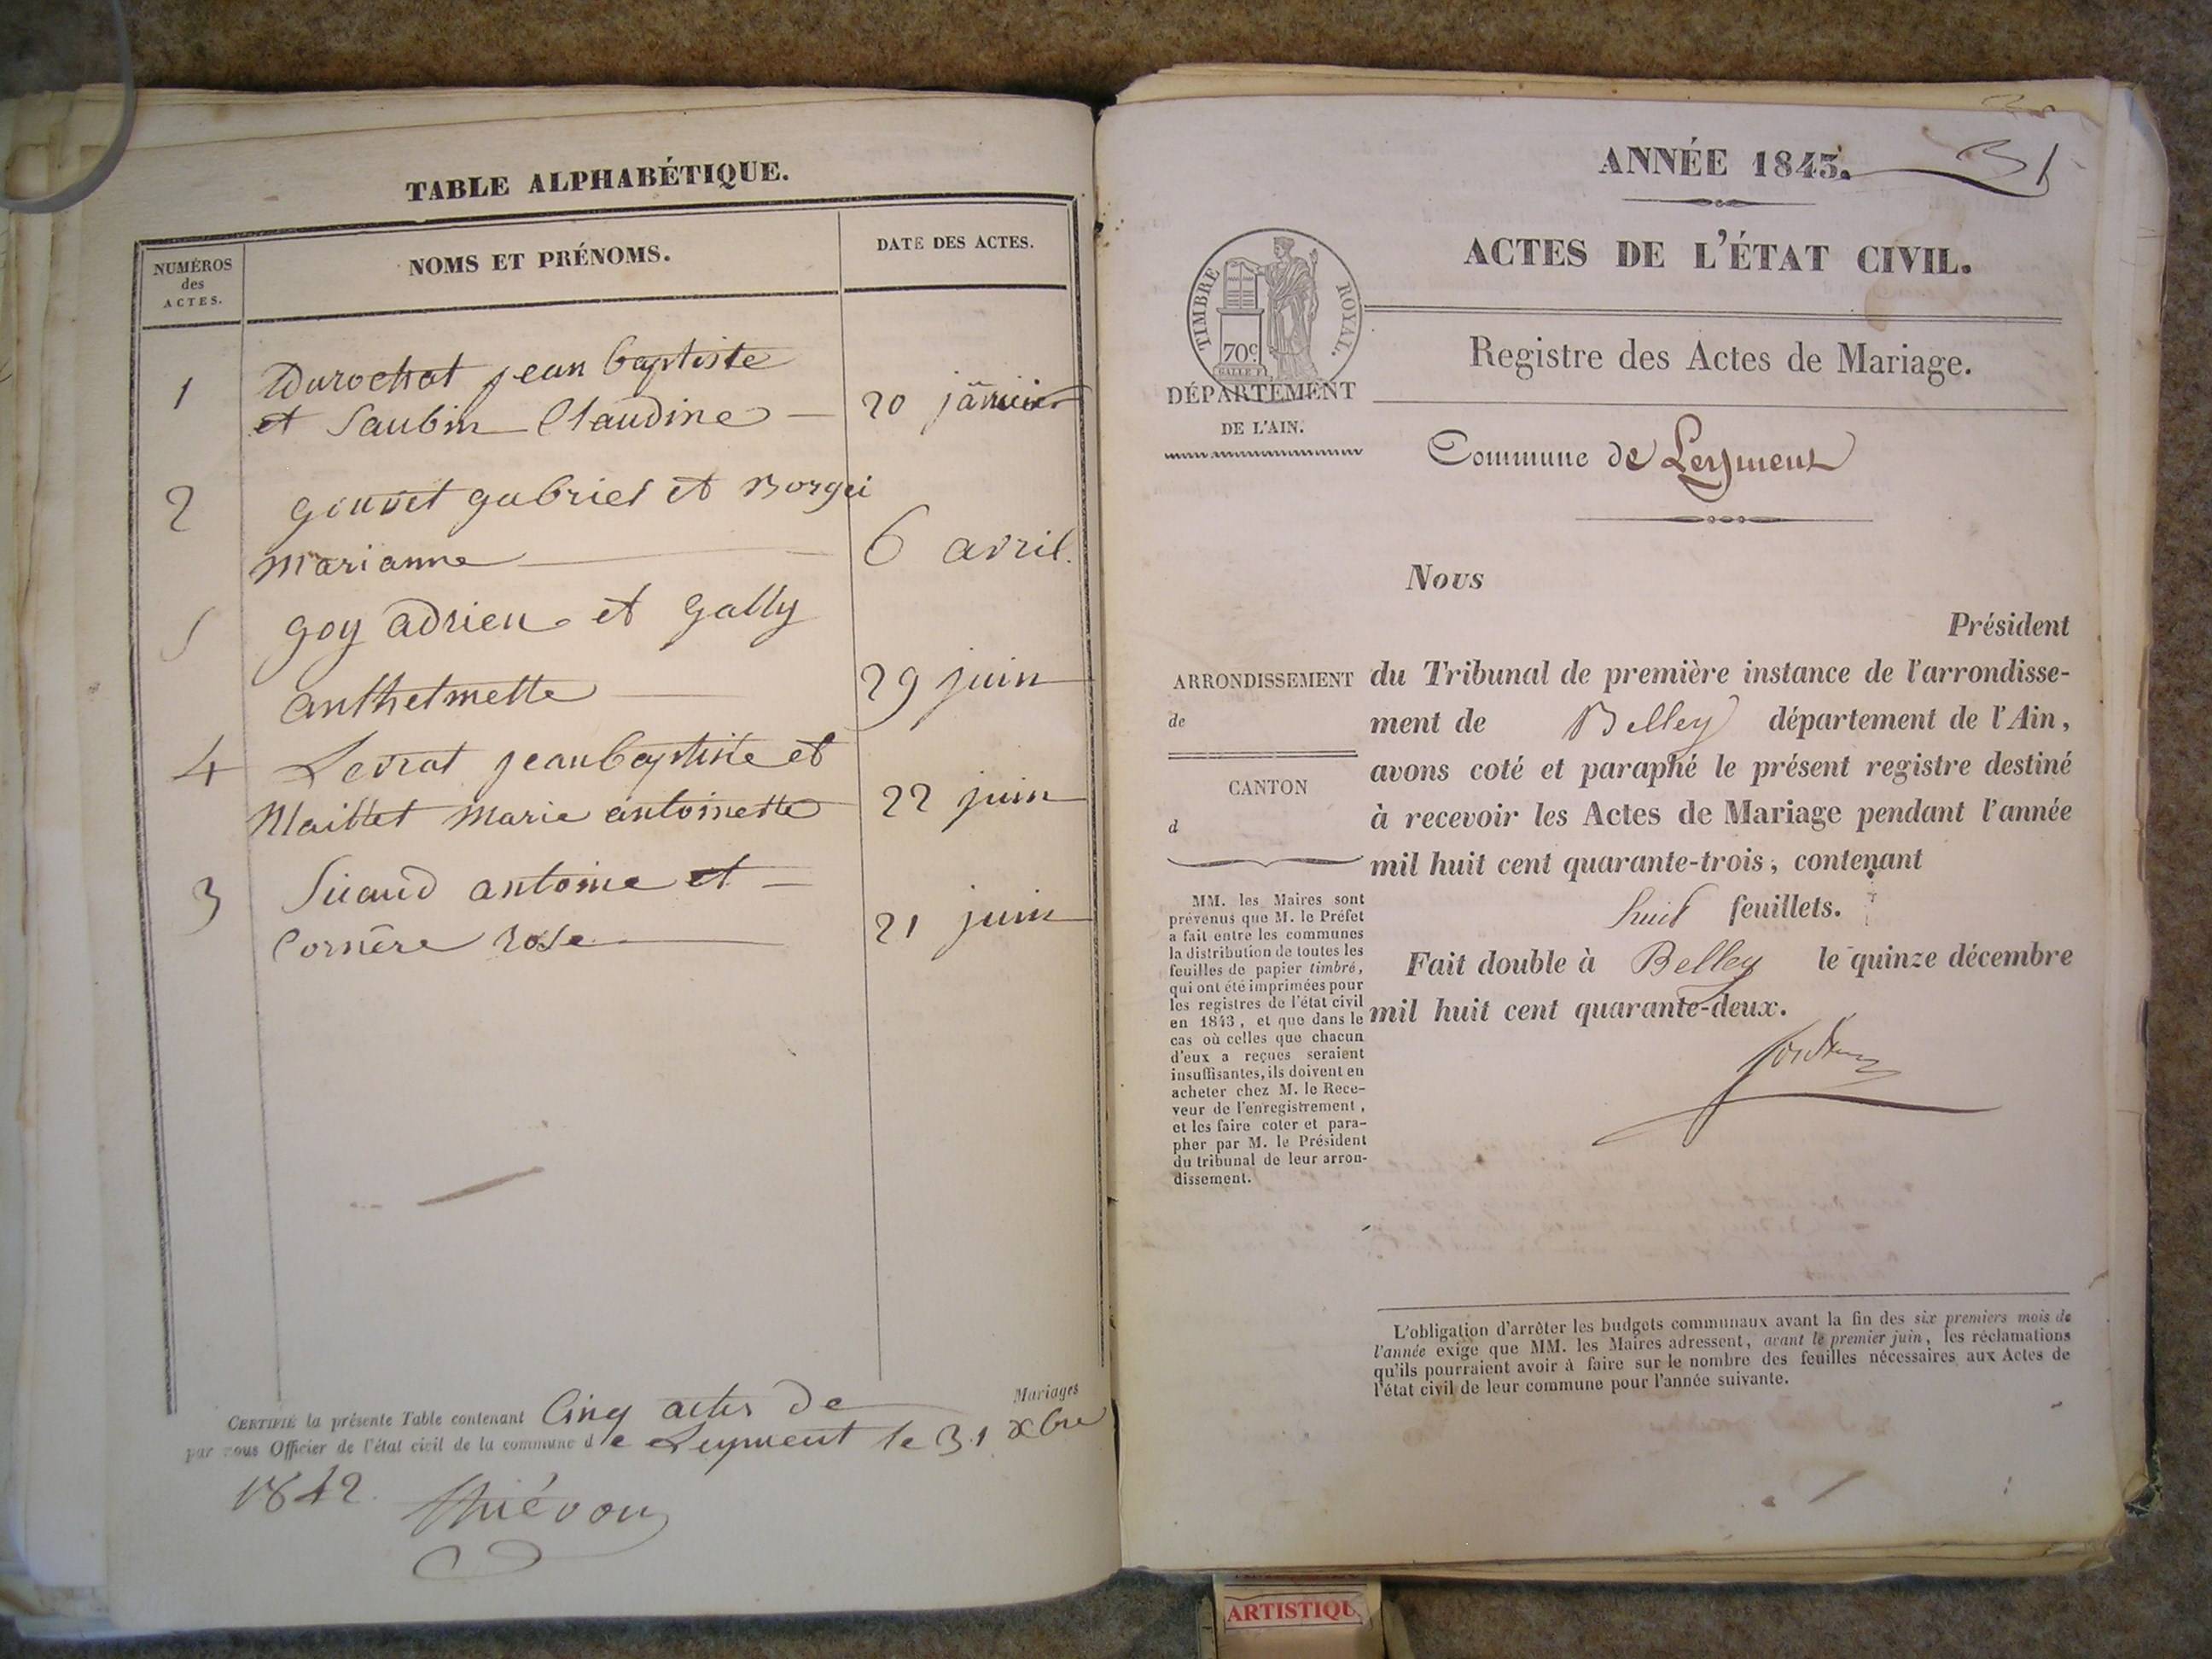 TABLE ALPHABÉTIQUE.
NUMÉROS
des
ACTES.
NOMS ET PRÉNOMS.
DATE DES ACTES.
1 Durochat jean baptiste
et Saubin Claudine — 20 janvier
2 gouvet gabriel et Borgei
marianne — 6 avril.
5 goy adrien et gally
anthelmette — 29 juin
4 Levrat jean baptiste et
Maillet marie antoinette 22 juin
3 Sicaud antoine et —
Cornère rose — 21 juin
CERTIFIÉ la présente Table contenant Cinq actes de Mariages
par nous Officier de l'état civil de la commune de Leyment le 31 xbre
1842. Thiévon
31
ANNÉE 1843.
ACTES DE L'ÉTAT CIVIL.
TIMBRE ROYAL.
70c
Registre des Actes de Mariage.
DÉPARTEMENT
DE L'AIN.
Commune de Leyment
Nous
Président
ARRONDISSEMENT
de
CANTON
d
du Tribunal de première instance de l'arrondisse-
ment de Belley département de l'Ain,
avons coté et paraphé le présent registre destiné
à recevoir les Actes de Mariage pendant l'année
mil huit cent quarante-trois, contenant
huit feuillets.
Fait double à Belley le quinze décembre
mil huit cent quarante-deux.
MM. les Maires sont
prévenus que M. le Préfet
a fait entre les communes
la distribution de toutes les
feuilles de papier timbré,
qui ont été imprimées pour
les registres de l'état civil
en 1843, et que dans le
cas où celles que chacun
d'eux a reçues seraient
insuffisantes, ils doivent en
acheter chez M. le Rece-
veur de l'enregistrement,
et les faire coter et para-
pher par M. le Président
du tribunal de leur arron-
dissement.
L'obligation d'arrêter les budgets communaux avant la fin des six premiers mois de
l'année exige que MM. les Maires adressent, avant le premier juin, les réclamations
qu'ils pourraient avoir à faire sur le nombre des feuilles nécessaires aux Actes de
l'état civil de leur commune pour l'année suivante.
ARTISTIQU